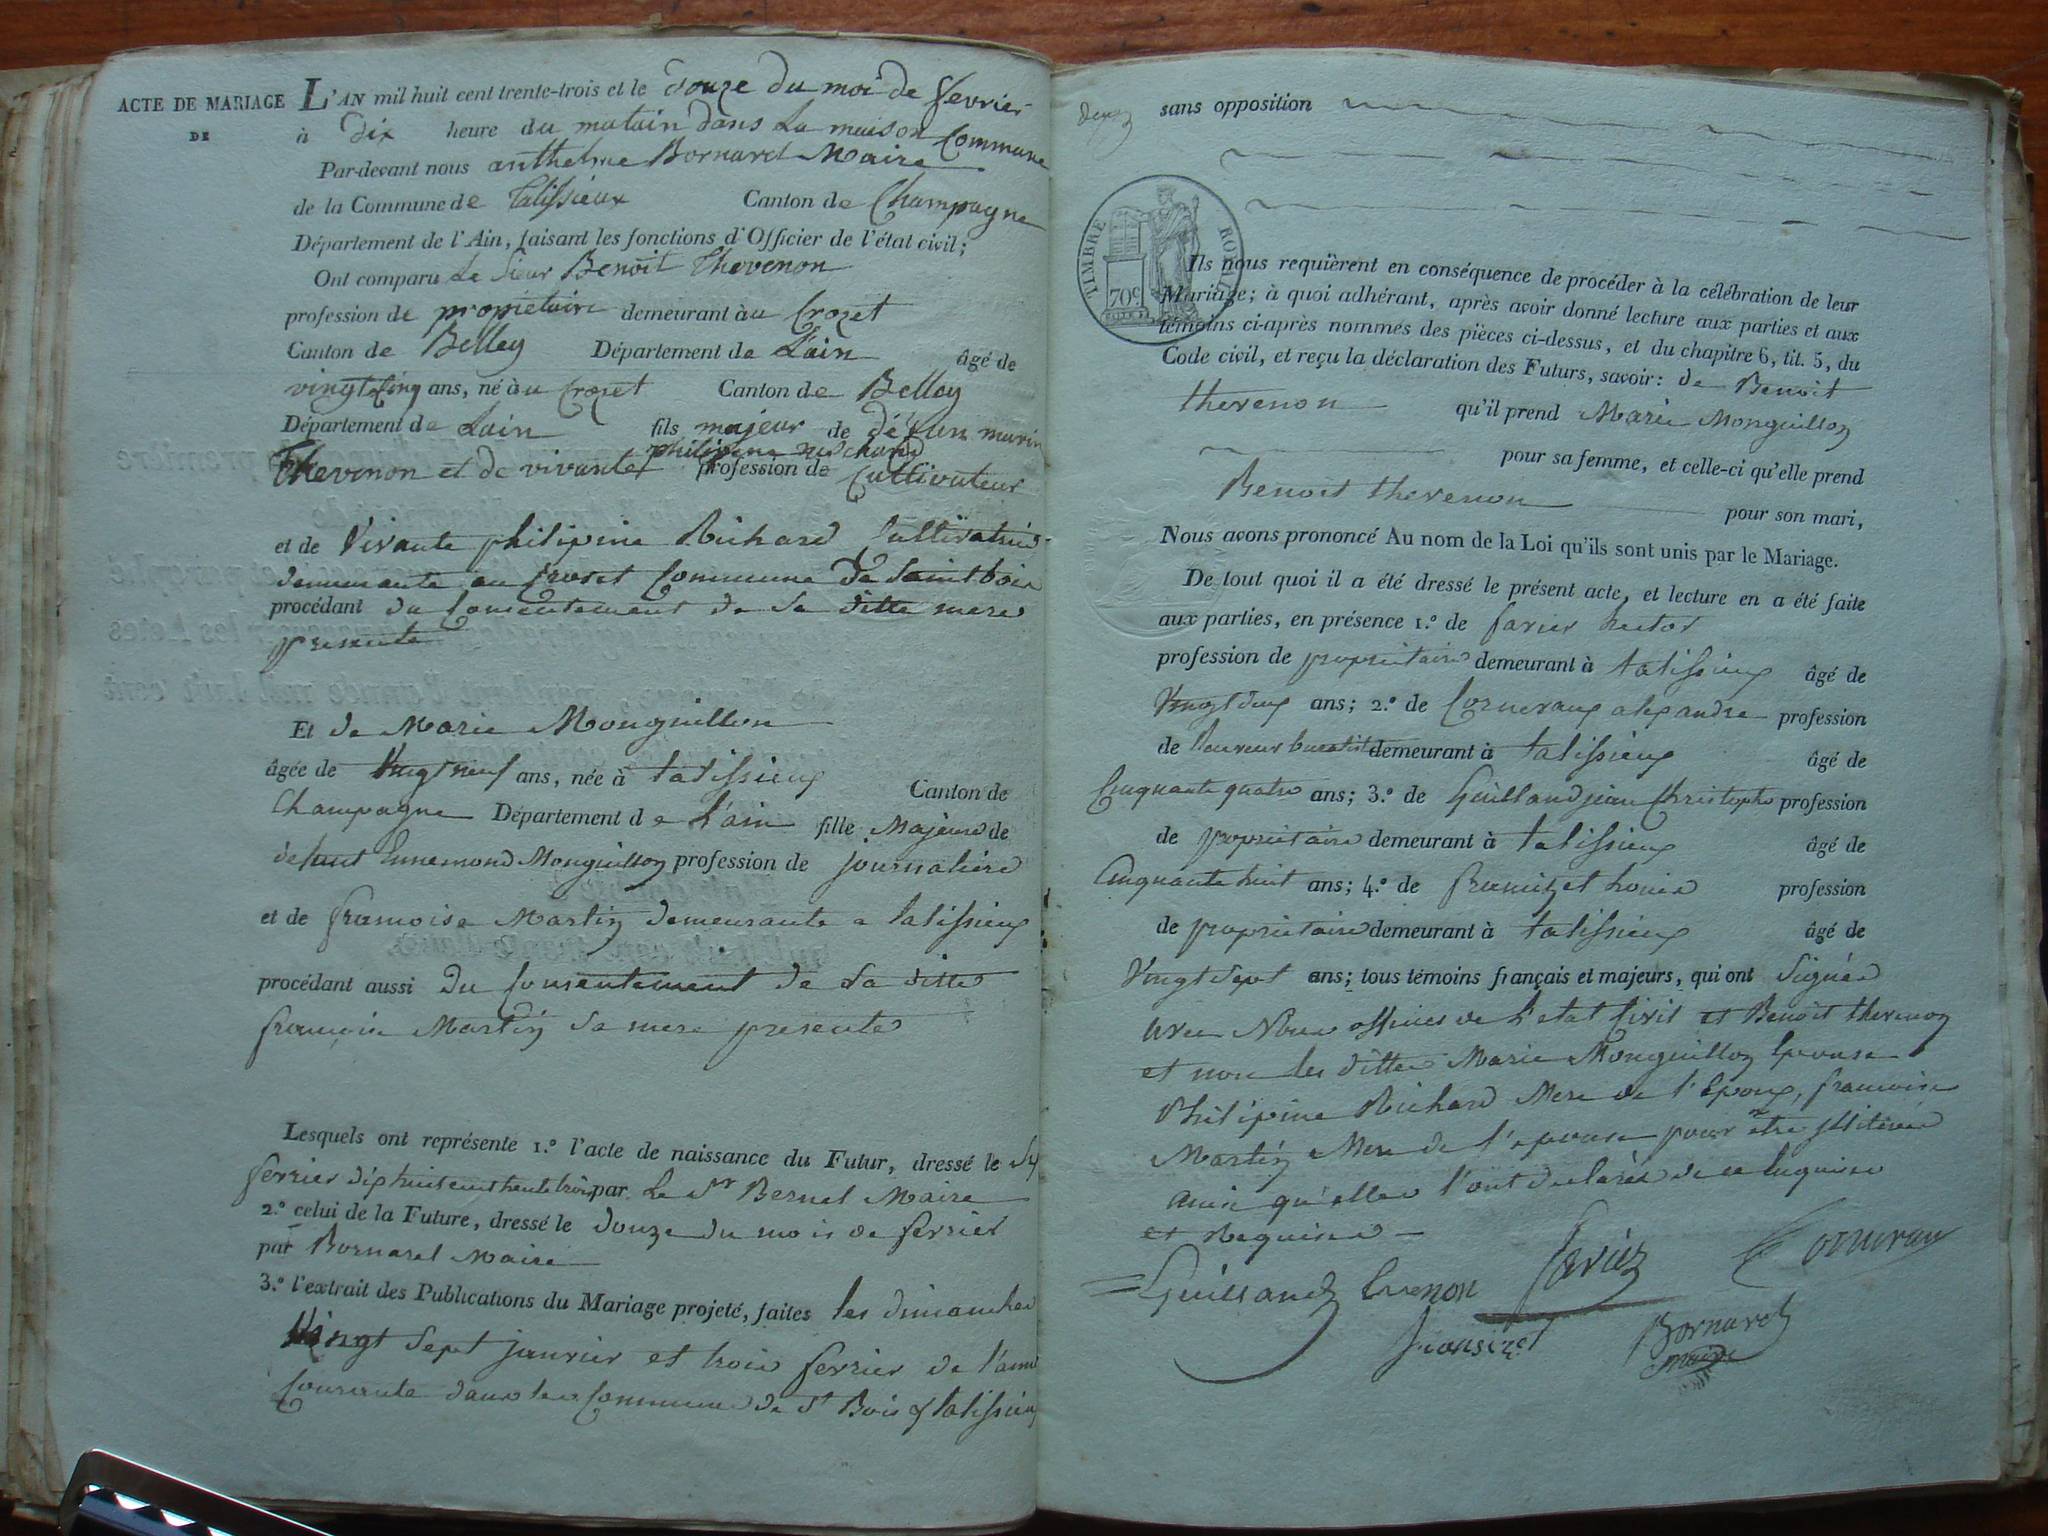 ACTE DE MARIAGE L'AN mil huit cent trente-trois et le douze du moi de fevrier
DE
à Dix heure du matain dans La maison Commune
Par-devant nous anthelme Bornarel Maire
de la Commune de Talissieux Canton de Champagne
Département de l'Ain, faisant les fonctions d'Officier de l'état civil;
Ont comparu Le Sieur Benoît Thevenon
profession de propietaire demeurant àu Crozet
Canton de Belley Département de L'ain âgé de
vingt Cinq ans, né àu Crozet Canton de Belley
Département de Lain fils majeur de défun marin
philipine richard
Thevenon et de vivante profession de Cultivateur
et de Vivante philipine Richard Cultivatrice
demeurante au Croset Commune de Saint bois
procédant du Consentement de Sa ditte mere
presente
Et de Marie Monguillon
âgée de Vingt neuf ans, née à talissieux Canton de
Champagne Département de L'ain fille Majeure de
defunt Ennemond Monguillon profession de journaliere
et de francoise Martin demeurante a talissieux
procédant aussi Du Consentement de Sa ditte
francoise Martin Sa mere presente
Lesquels ont représenté 1.º l'acte de naissance du Futur, dressé le
fevrier dix huit cent trente trois par Le Sr Bernel Maire
2.º celui de la Future, dressé le douze du mois de fevrier
par Bornarel Maire
3.º l'extrait des Publications du Mariage projeté, faites les dimanches
Vingt Sept janvier et trois fevrier de l'anné
Courante dans les Communes de St Bois & talissieux
sans opposition
TIMBRE ROYAL
70c
Ils nous requièrent en conséquence de procéder à la célébration de leur
Mariage; à quoi adhérant, après avoir donné lecture aux parties et aux
témoins ci-après nommés des pièces ci-dessus, et du chapitre 6, tit. 5, du
Code civil, et reçu la déclaration des Futurs, savoir: de Benoit
thevenon qu'il prend Marie Monguillon
pour sa femme, et celle-ci qu'elle prend
Benoit thevenon pour son mari,
Nous avons prononcé Au nom de la Loi qu'ils sont unis par le Mariage.
De tout quoi il a été dressé le présent acte, et lecture en a été faite
aux parties, en présence 1.º de favier hector
profession de proprietaire demeurant à talissieux âgé de
Vingt deux ans; 2.º de Corneraux alexandre profession
de demeurant à talissieux âgé de
Cinquante quatre ans; 3.º de Guilland jean Christophe profession
de proprietaire demeurant à talissieux âgé de
Cinquante huit ans; 4.º de profession
de proprietaire demeurant à talissieux âgé de
Vingt Sept ans; tous témoins français et majeurs, qui ont Signés
avec Nous officier de l'etat Civil et Benoit thevenon
et non les dittes Marie Monguillon Epouse
Philipine Richard Mere de l'Epoux, francoise
Martin Mere de l'epouse pour être illiterée
ainsi qu'elles l'ont declarés de ce Enquises
et Requises
Guilland tevenon favier Corneraux
Bornarel
maire